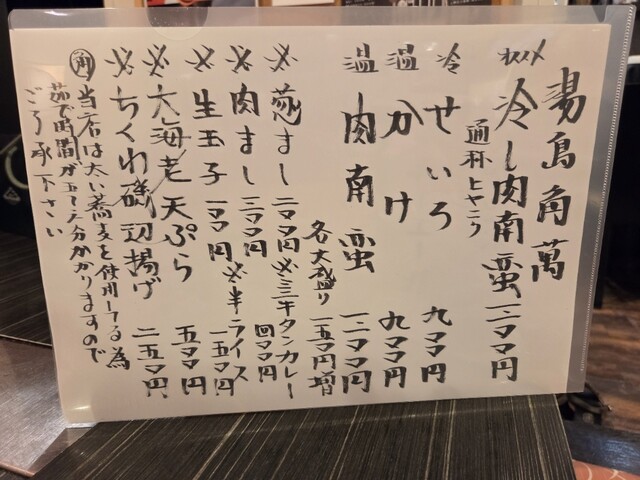 湯島角萬
オススメ 冷し肉南蛮 一、二〇〇円
通称ヒヤニク
冷 せいろ 九〇〇円
温 かけ 九〇〇円
温 肉南蛮 一、二〇〇円
各大盛り 一五〇円増
※葱まし 二〇〇円
※牛タンカレー 四〇〇円
※肉まし 三〇〇円
※半ライス 一五〇円
※生玉子 一〇〇円
※大海老天ぷら 五〇〇円
※ちくわ磯辺揚げ 二五〇円
角 当店は太い蕎麦を使用してる為
茹で時間が五〜六分かかりますので
ご了承下さい